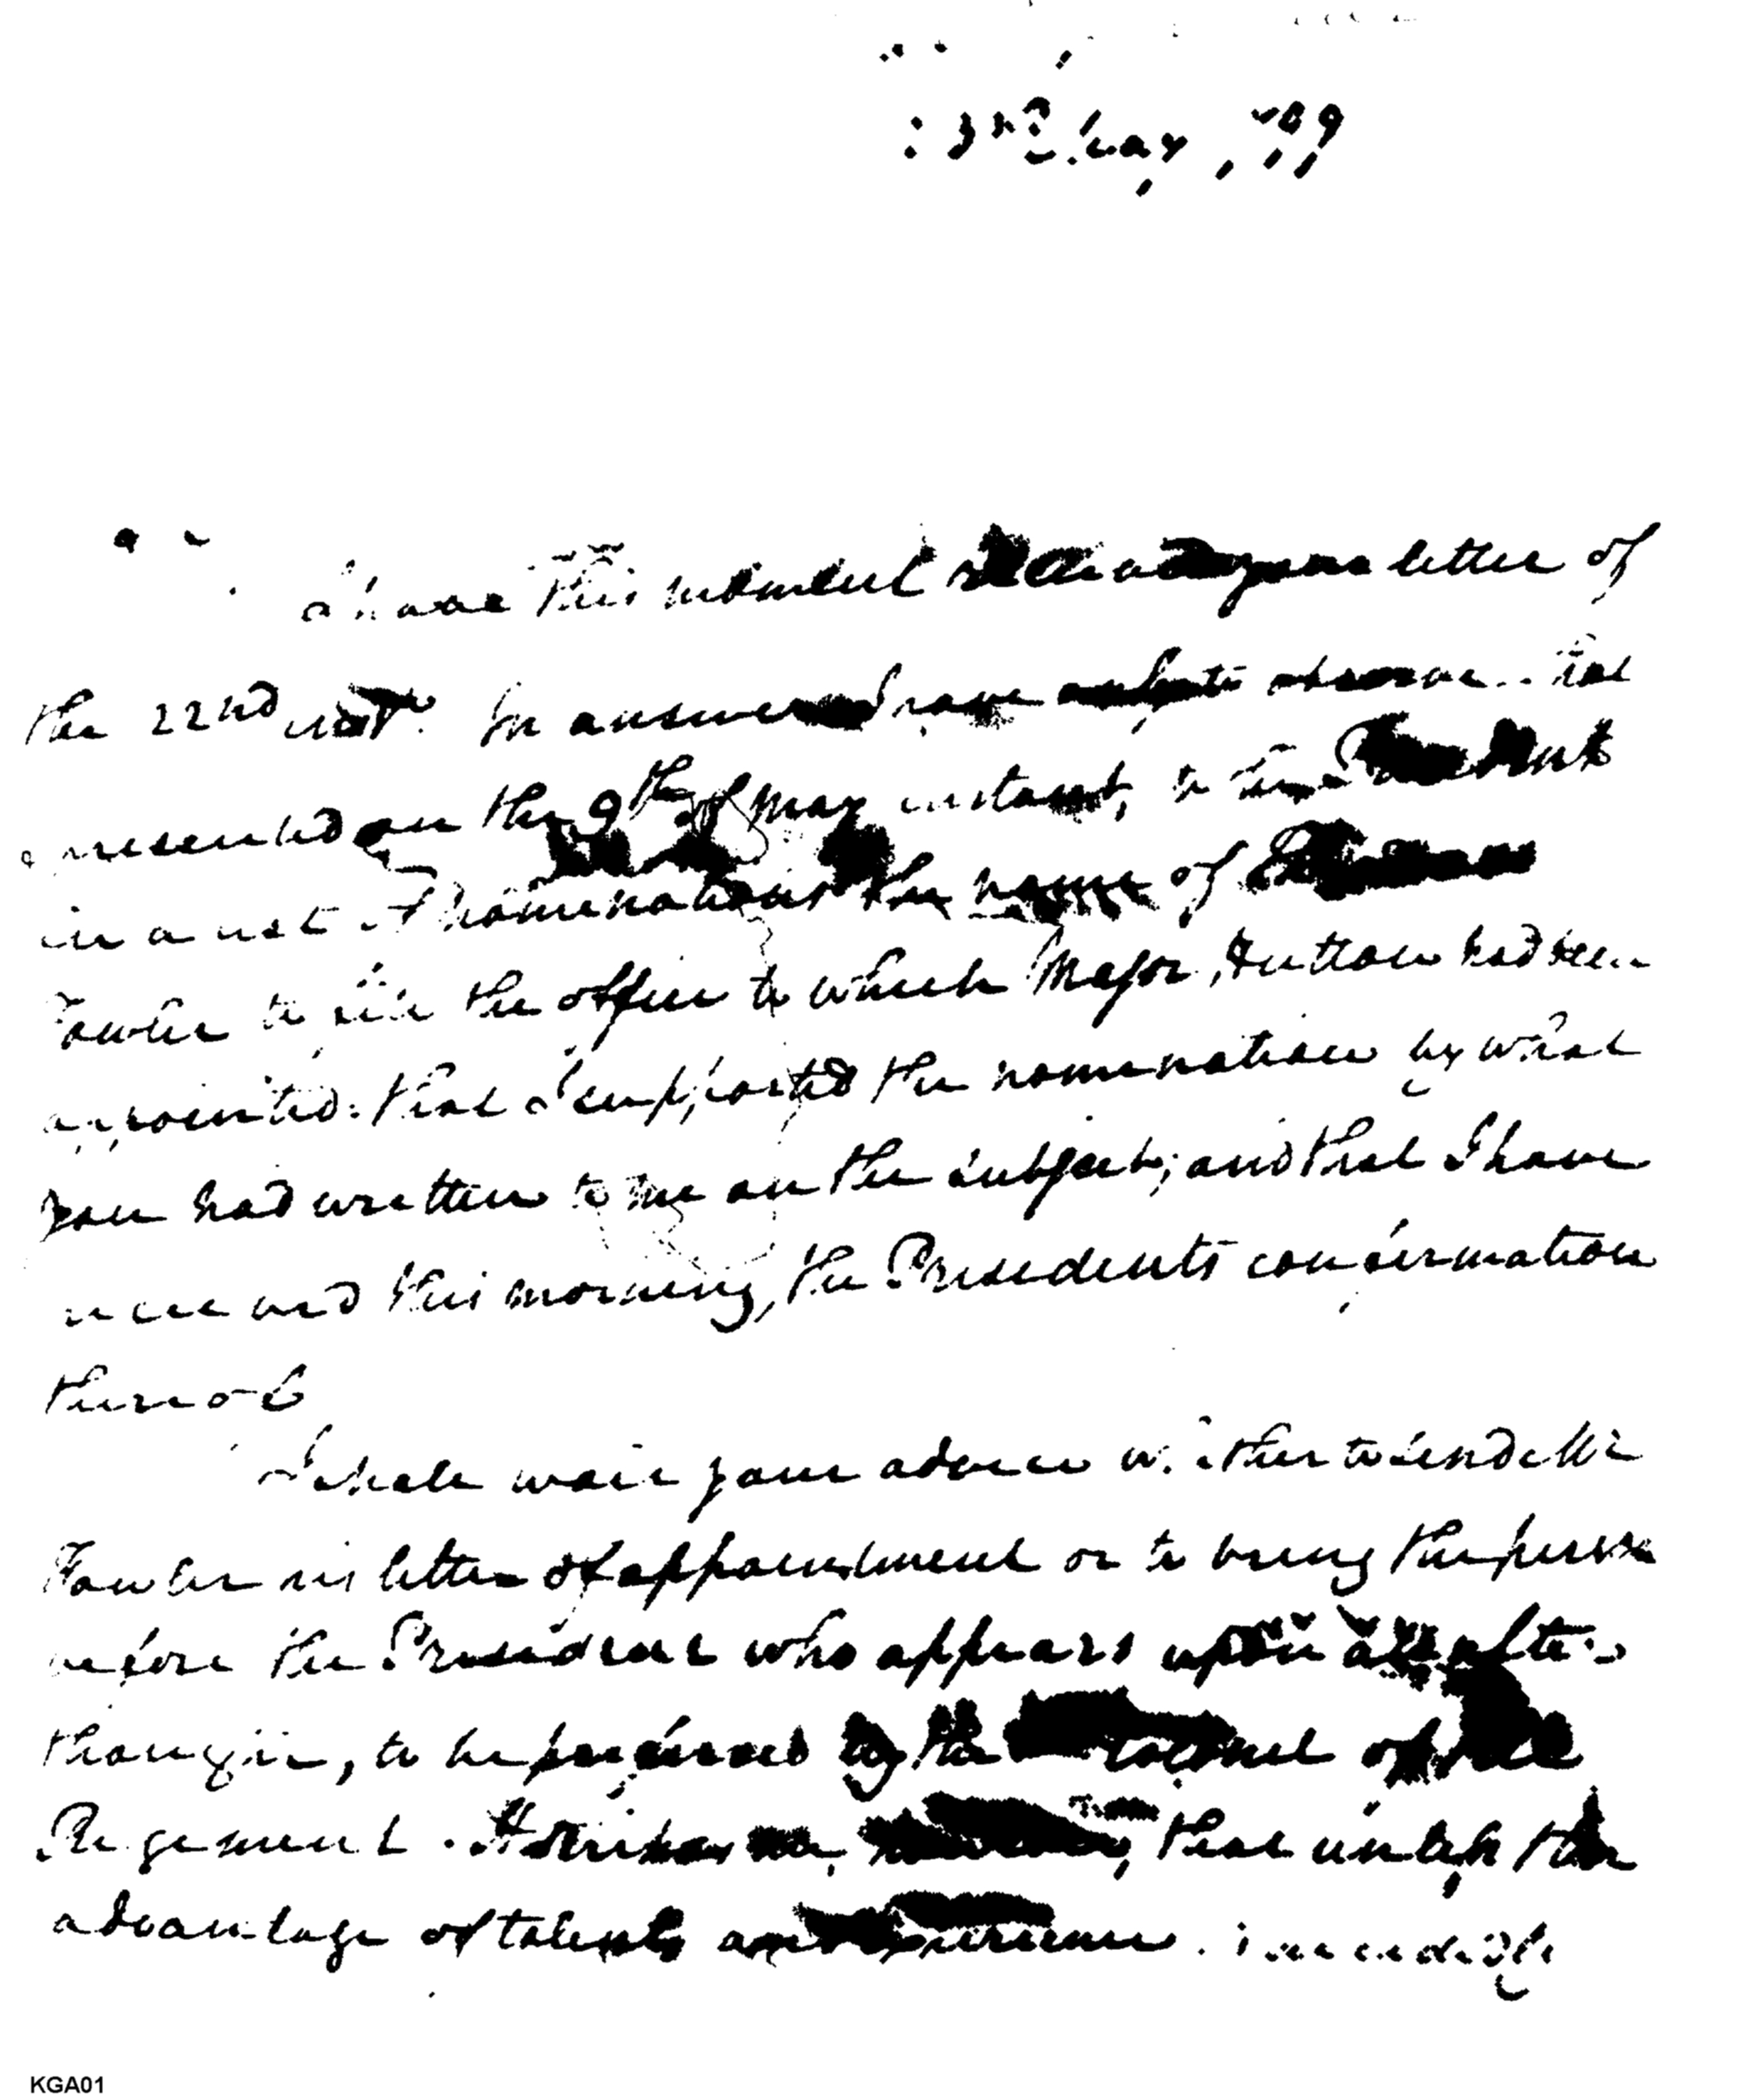 May 1799
I have this moment received your letter of
the 22nd inst. In answer I have only to observe that
I presented on the 9th of May instant, to the President
in a list of nominations the name of
Fowler to fill the office to which Major Hutton had been
appointed: that I supported the nomination by what
you had written to me on the subject; and that I have
received this morning, the Presidents confirmation
thereof
I shall wait your advice whether to send Mr
Fowler his letter of appointment or to bring the person
before the President who appears upon an after
thought, to be preferred by the Colonel of the
Regiment. It strikes me, that unless the
advantage of talents and